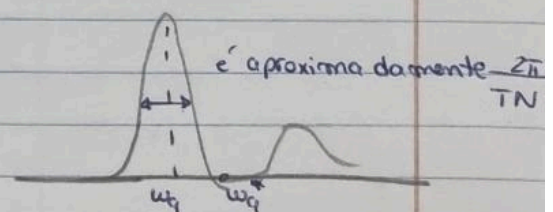 é aproximadamente 2π
TN
ω₁ ω₂